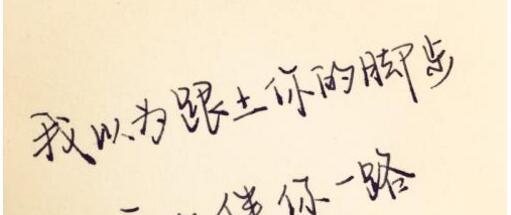 我以为跟上你的脚步
伴你一路